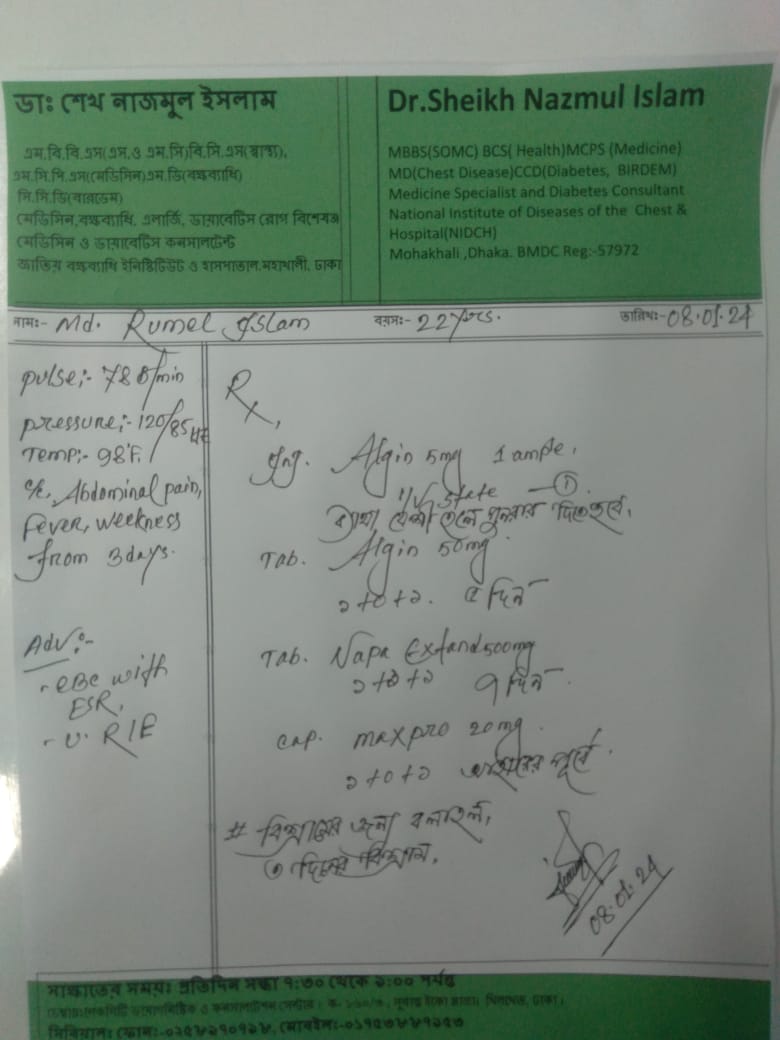 ডাঃ শেখ নাজমুল ইসলাম
এম.বি.বি.এস(এস.ও এম.সি)বি.সি.এস(স্বাস্থ্য),
এম.সি.পি.এস(মেডিসিন)এম.ডি(বক্ষব্যাধি)
সি.সি.ডি(বারডেম)
মেডিসিন,বক্ষব্যাধি, এলার্জি, ডায়াবেটিস রোগ বিশেষজ্ঞ
মেডিসিন ও ডায়াবেটিস কনসালটেন্ট
জাতিয় বক্ষব্যাধি ইনিষ্টিটিউট ও হাসপাতাল.মহাখালী, ঢাকা
Dr.Sheikh Nazmul Islam
MBBS(SOMC) BCS( Health)MCPS (Medicine)
MD(Chest Disease)CCD(Diabetes, BIRDEM)
Medicine Specialist and Diabetes Consultant
National Institute of Diseases of the Chest &
Hospital(NIDCH)
Mohakhali ,Dhaka. BMDC Reg:-57972
নাম:- Md. Rumel Islam বয়স:- 22yrs. তারিখ:- 08.01.24
pulse:- 78 b/min
pressure:- 120/85
Temp:- 98°F.
c/c, Abdominal pain,
Fever, weekness
from 3days.
Adv:-
- CBC with
ESR,
- U. R/E
Rx,
Inj. Algin 5mg 1 ample.
1/V State — 1
ব্যাথা বেশী হলে পুনরায় দিতে হবে।
Tab. Algin 50mg.
১+০+১. ৫ দিন
Tab. Napa Extand 500mg
১+০+১ ৭ দিন.
Cap. maxpro 20mg.
১+০+১ আহারের পূর্বে.
# বিশ্রামের জন্য বলা হল,
৩ দিনের বিশ্রাম.
08.01.24
সাক্ষাতের সময়ঃ প্রতিদিন সন্ধা ৭:৩০ থেকে ৯:০০ পর্যন্ত